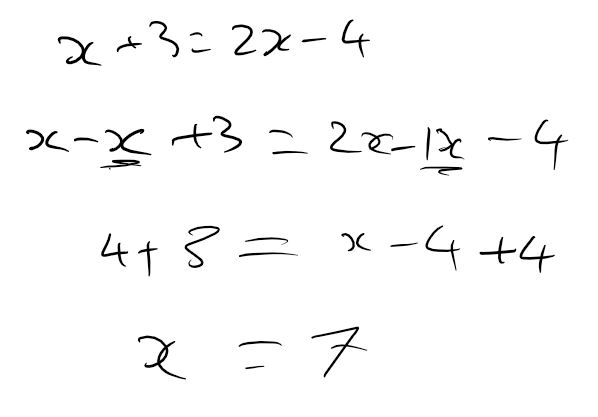 x + 3 = 2x - 4
x - x + 3 = 2x - 1x - 4
4 + 3 = x - 4 + 4
x = 7